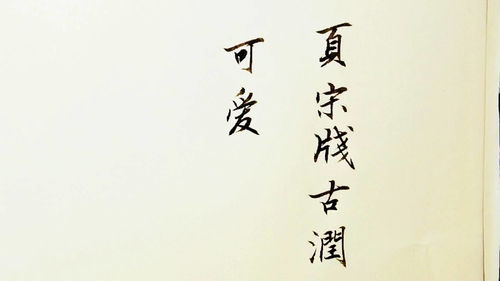 頁宋牋古潤
可爱